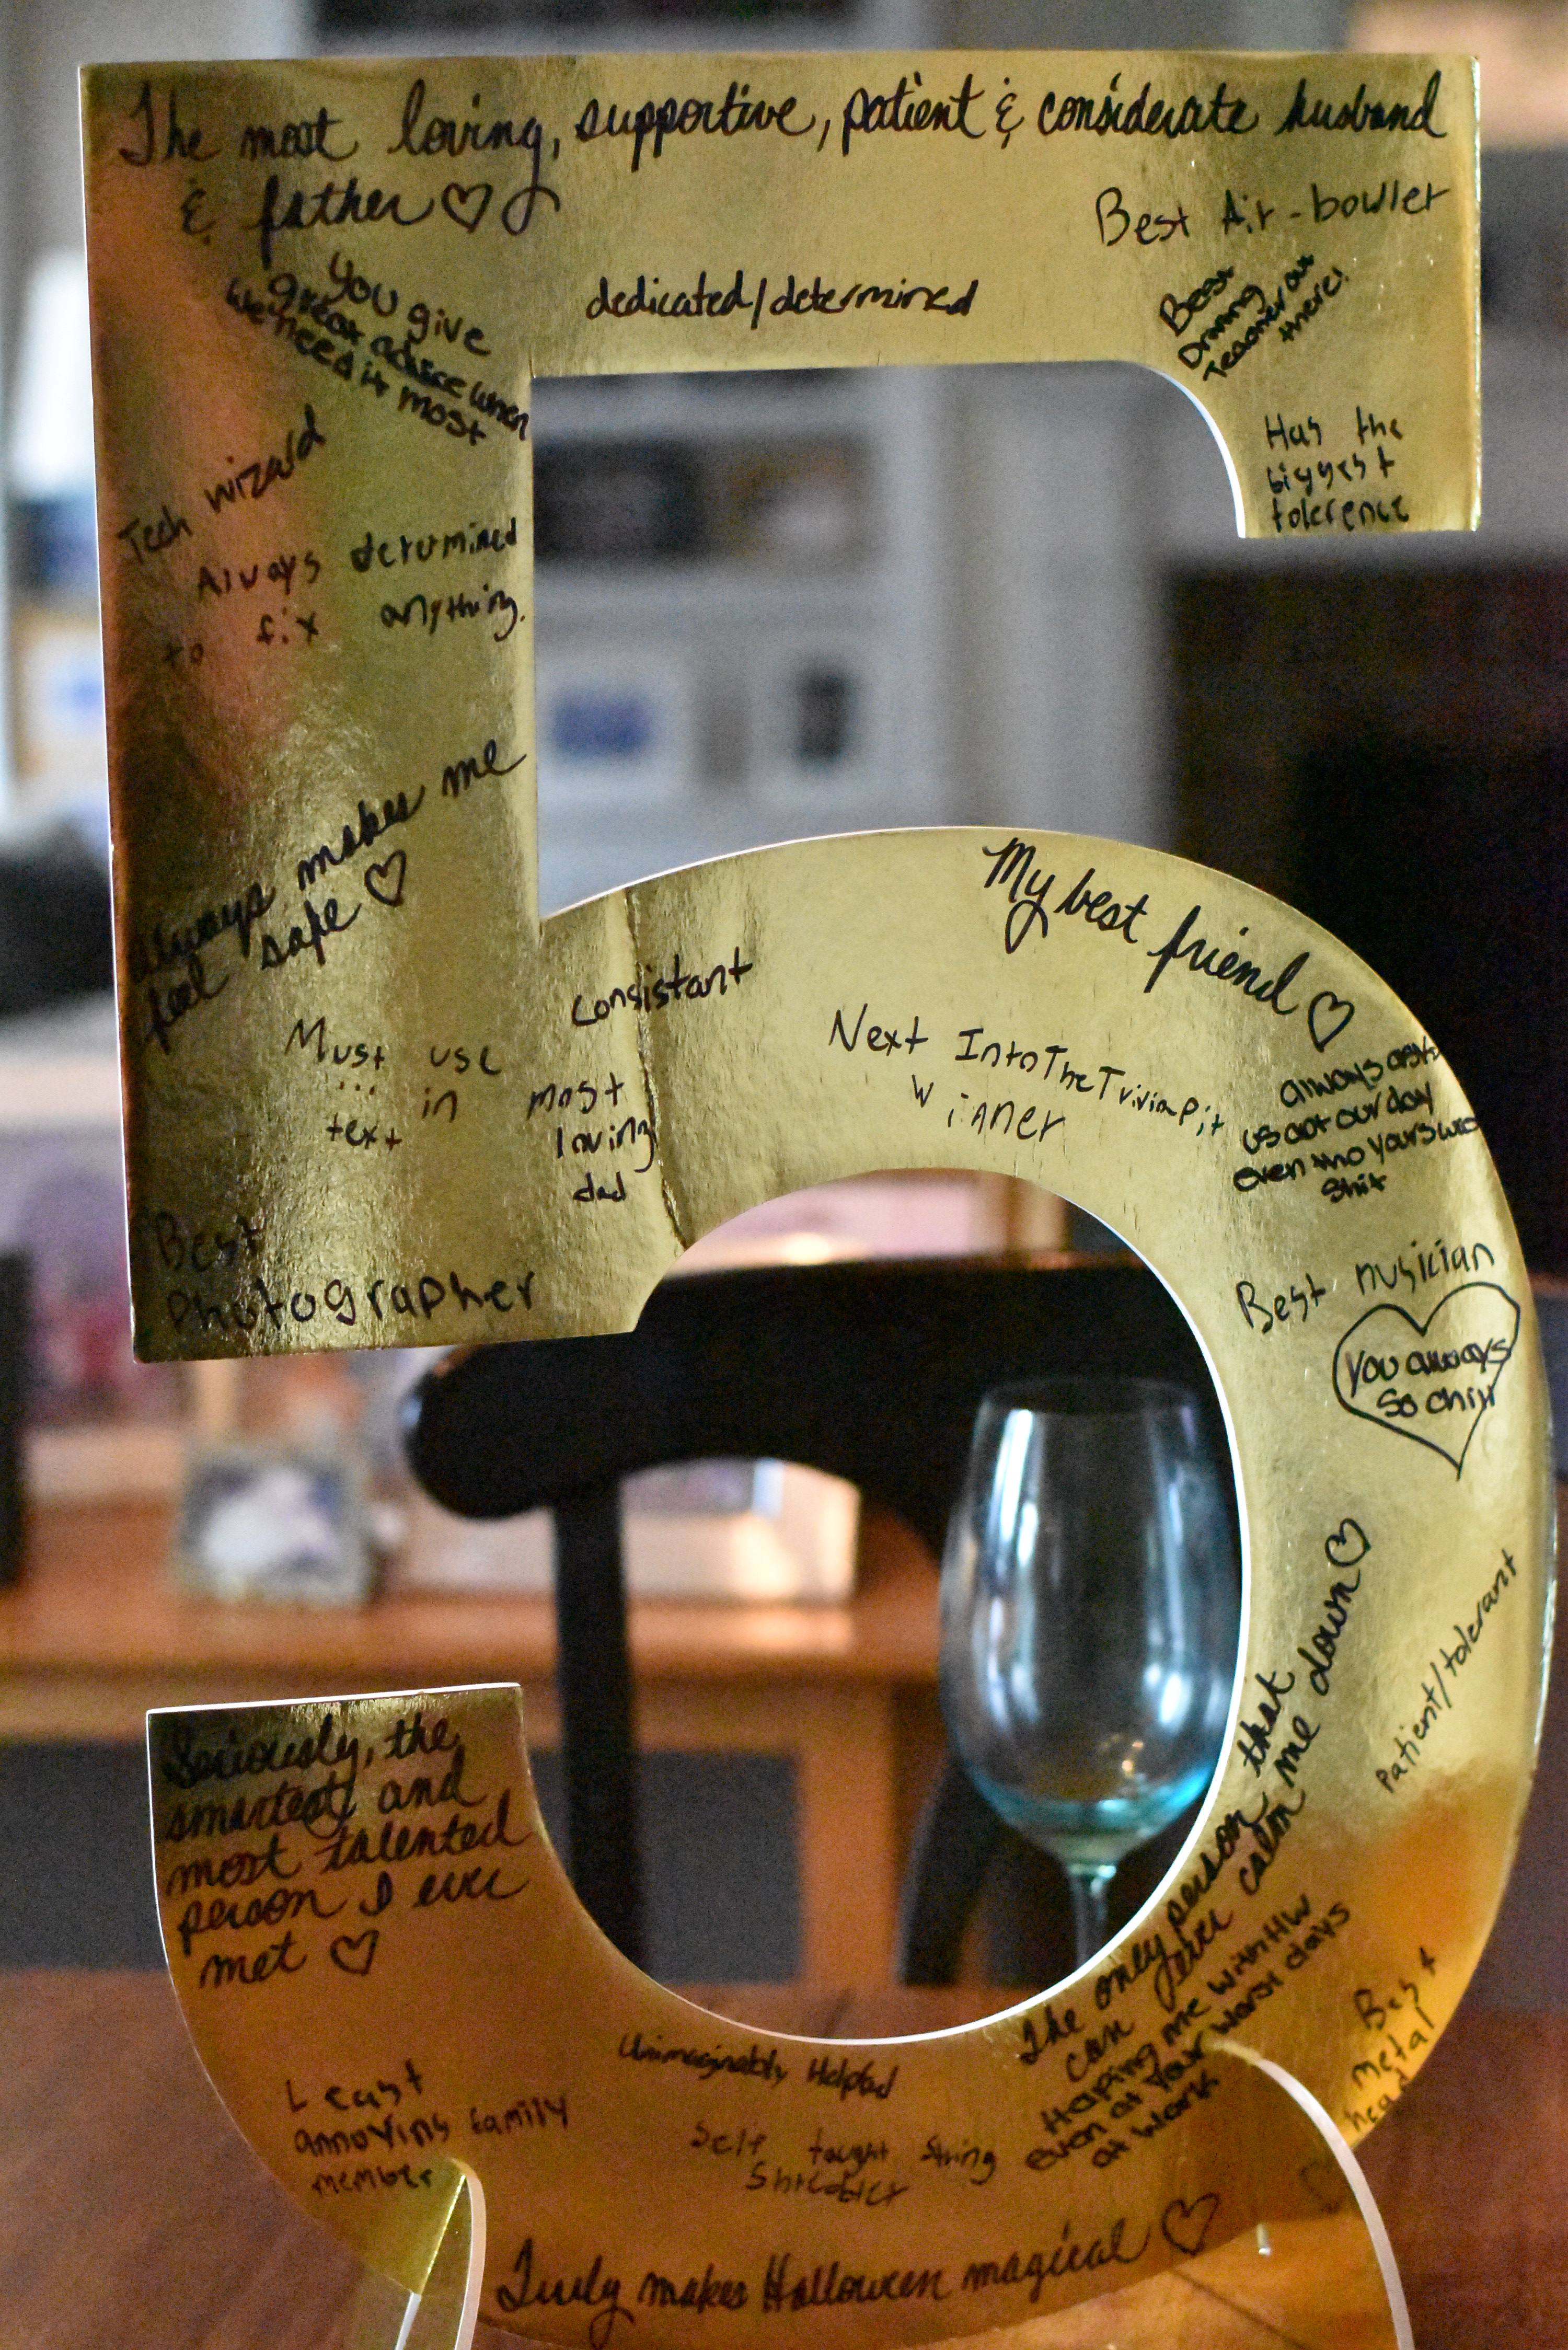 The most loving, supportive, patient & considerate husband
& father
Best Air-bowler
You give
great advice when
we need it most
dedicated/determined
Best
Driving
Teacher out
there!
Has the
biggest
tolerence
Tech wizard
Always determined
to fix anything.
Always makes me
feel safe
My best friend
Consistant
Must use
... in
text
most
loving
dad
Next IntoTheTriviaPit
Winner
always ask
us abt our day
even tho yours was
shit
Best
Photographer
Best musician
You always
so chill
Patient/tolerant
The only person that
can ever calm me down
Helping me with HW
even at your worst days
at work
Best
metal
head
Seriously, the
smartest and
most talented
person I ever
met
Unimaginably Helpful
Least
annoying family
member
Self taught string
Truly makes Halloween magical